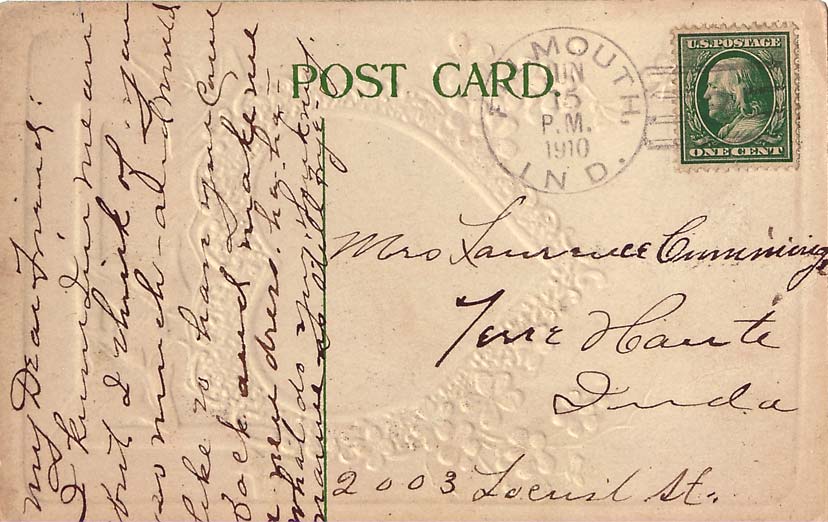 POST CARD.
FALMOUTH, IND.
JUN
15
P.M.
1910
U.S. POSTAGE
ONE CENT
My Dear Friend:
I know I'm mean
but I think of you
so much – and would
like to have you come
back and make me
a new dress. ha-ha-
what do you think
Mrs Lawrence Cummings
Terre Haute
Inda
2003 Locust St.